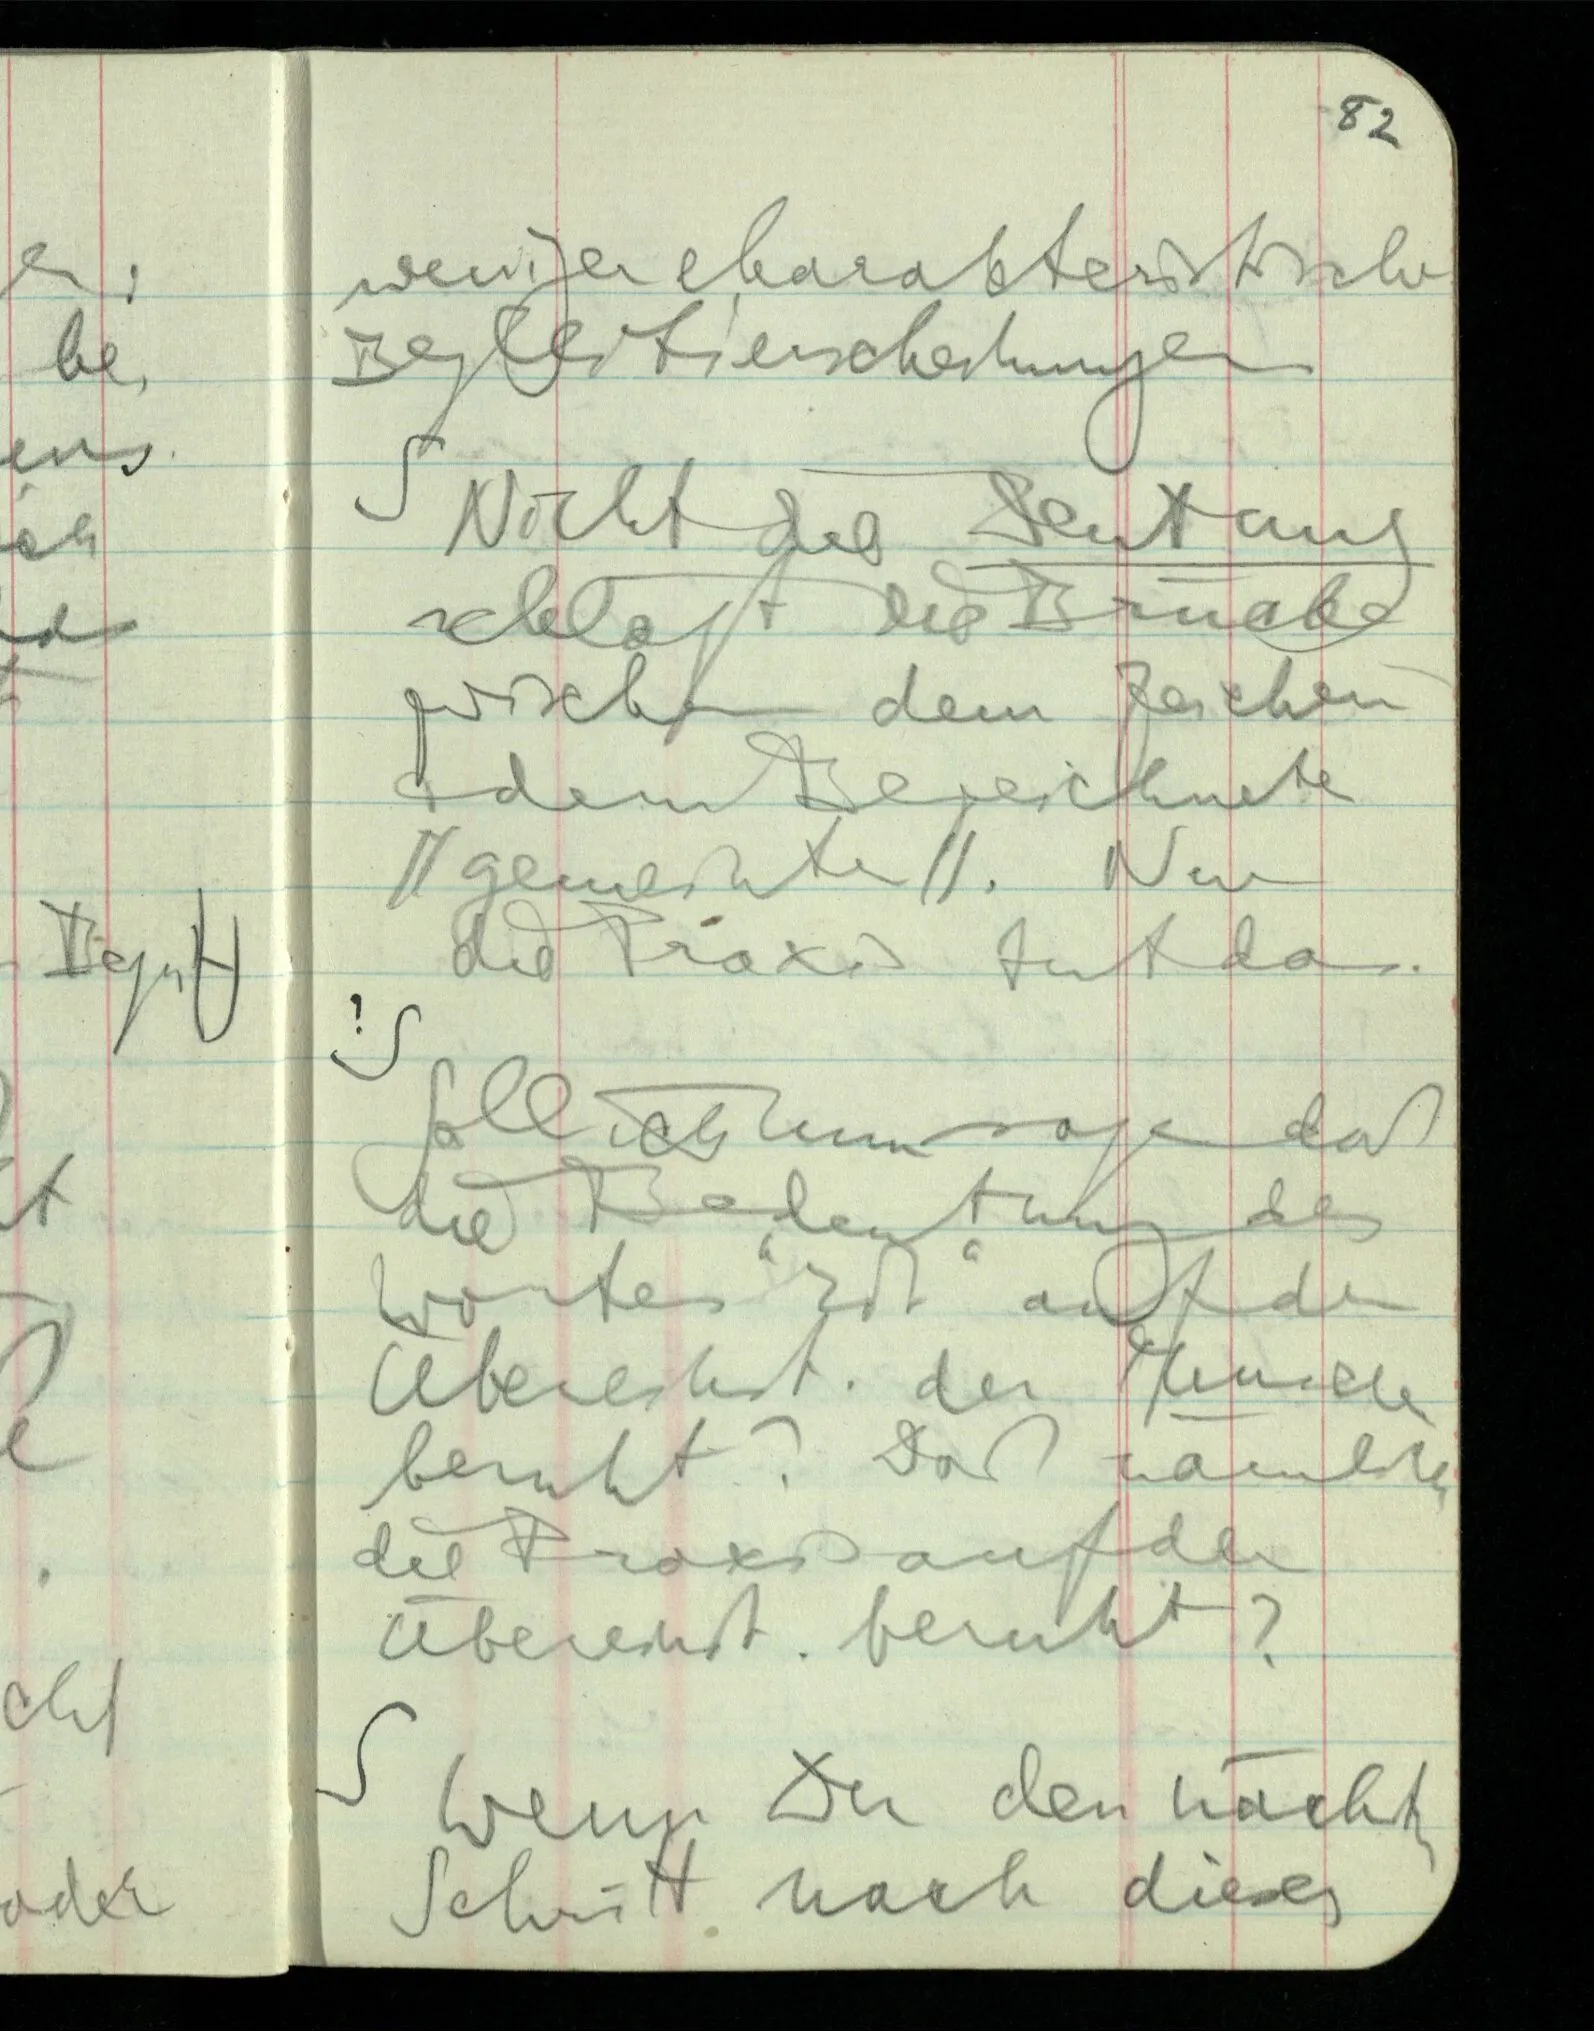 82
weniger charakteristische
Begleiterscheinungen
∫ Nicht die Deutung
schlägt die Brücke
zwischen dem Zeichen
& dem Bezeichneten
//gemeinten//. Nur
die Praxis tut das.
? ∫
Soll ich nun sagen daß
die Bedeutung des
Wortes "rot" auf der
Übereinst. der Menschen
beruht? Daß nämlich
die Praxis auf der
Übereinst. beruht?
∫ Wenn Du den nächsten
Schritt nach dieser
er;
be,
ens.
ich
Begriff
cht
oder